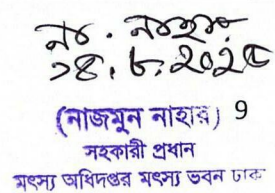 নাহার
১৪.৮.২০২৫
(নাজমুন নাহার) 9
সহকারী প্রধান
মৎস্য অধিদপ্তর মৎস্য ভবন ঢাক